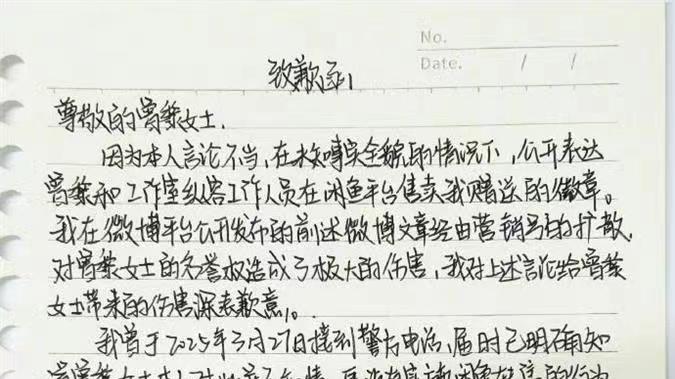 No.
Date. / /
致歉函
尊敬的曾黎女士,
因为本人言论不当,在未知事实全貌的情况下,公开表达
曾黎和工作室纵容工作人员在闲鱼平台售卖我赠送的徽章。
我在微博平台公开发布的前述微博文章经由营销号的扩散,
对曾黎女士的名誉权造成了极大的伤害,我对上述言论给曾黎
女士带来的伤害深表歉意。
我曾于2025年3月27日接到警方电话,届时已明确知